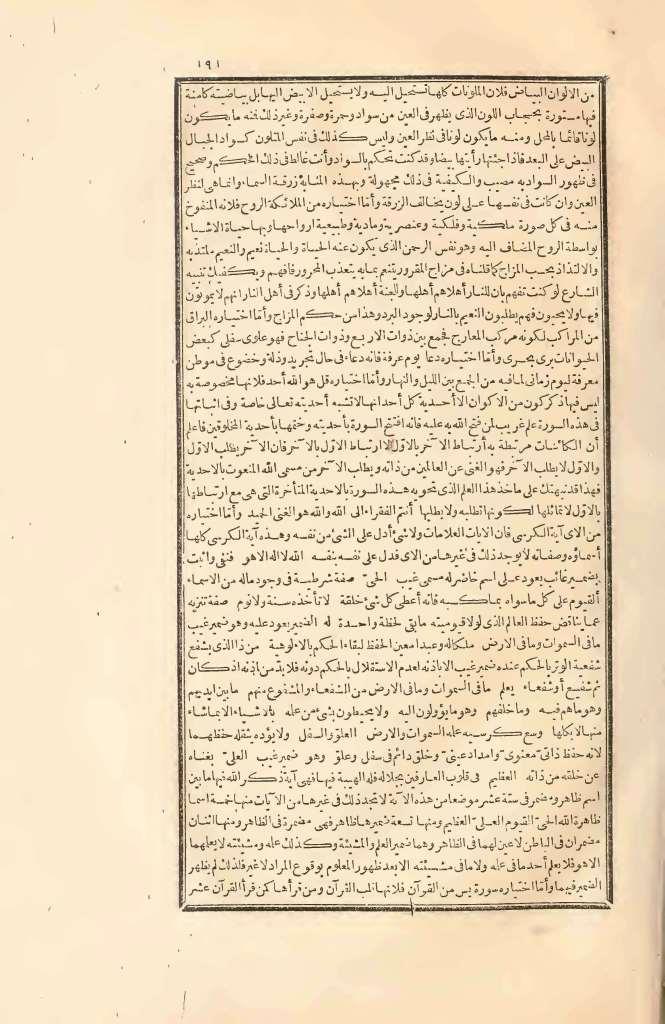 ١٩١
من الالوان البياض فلان الملونات كلها تستحيل اليه ولا يستحيل الابيض اليها بل بياضيته كامنة
فيها مستورة بحجاب اللون الذى يظهر فى العين من سواد وحمرة وصفرة وغير ذلك فنه ما يكون
لونا قائما بالمحل ومنه ما يكون لونا فى نظر العين وليس كذلك فى نفس المتلون كسواد الجبال
البيض على البعد فاذا جئتها رأيتها بيضا وقد كنت تحكم بالسواد وأنت غالط فى ذلك الحكم وصحيح
فى ظهور السواد به مصيب والكيفية فى ذلك مجهولة وبهذه المثابة زرقة السماء وانما هى لنظر
العين وان كانت فى نفسها على لون يخالف الزرقة وأما اختياره من الملائكة الروح فلانه المنفوخ
منه فى كل صورة ملكية وفلكية وعنصرية ومادية وطبيعية ارواحها وبها حياة الاشياء
بواسطة الروح المضاف اليه وهو نفس الرحمن الذى يكون عنه الحياة والحياة نعيم والنعيم ملتذ به
والالتذاذ بحسب المزاج كما قلناه فى مزاج المقرور يتنعم بما به يتعذب المحرور فافهم ويكفيك تنبيه
الشارع لو كنت تفهم بان للنار أهلا هم أهلها وللجنة أهلا هم أهلها وذكر فى أهل النار انهم لا يموتون
فيها ولا يحيون فهم يطلبون النعيم بالنار لوجود البرد وهذا من حكم المزاج وأما اختياره البراق
من المراكب لكونه مركب المعارج فجمع بين ذوات الاربع وذوات الجناح فهو علوى سفلى كبعض
الحيوانات برى بحرى وأما اختياره دعاء يوم عرفة فانه دعاء فى حال تجريد وذلة وخضوع فى موطن
معرفة ليوم زمانى لما فيه من الجمع بين الليل والنهار وأما اختياره قل هو الله أحد فلانها مخصوصة به
ليس فيها ذكر كون من الاكوان الا أحدية كل أحد انها لا تشبه أحديته تعالى خاصة وفى اثباتها
فى هذه السورة علم غريب لمن فتح الله به عليه فانه افتتح السورة بأحديته وختمها بأحدية المخلوقين فاعلم
أن الكائنات مرتبطة به ارتباط الآخر بالاول لا ارتباط الاول بالآخر فان الآخر يطلب الاول
والاول لا يطلب الآخر فهو الغنى عن العالمين من ذاته ويطلب الآخر من مسمى الله المنعوت بالاحدية
فهذا قد نبهتك على مأخذ هذا العلم الذى تحويه هذه السورة بالاحدية المتأخرة التى هى مع ارتباطها
بالاول لا تماثلها لكونها تطلبه ولا يطلبها أنتم الفقراء الى الله والله هو الغنى الحميد وأما اختياره
من الاى آية الكرسى فان الايات العلامات ولا شئ أدل على الشئ من نفسه وهذه آية الكرسى كلها
أسماؤه وصفاته لا يوجد ذلك فى غيرها من الاى فدل على نفسه بنفسه الله لا اله الا هو فنفى واثبت
بضمير غائب يعود على اسم حاضر له مسمى غيب الحى صفة شرطية فى وجود ماله من الاسماء
القيوم على كل ما سواه بما كسبه فانه أعطى كل شئ خلقه لا تأخذه سنة ولا نوم صفة تنزيه
عما يناقض حفظ العالم الذى لولا قيوميته ما بقى لحظة واحدة له الضمير يعود عليه وهو ضمير غيب
ما فى السموات وما فى الارض ملكا له وعبدا معين الحفظ لبقاء الحكم بالالوهية من ذا الذى يشفع
شفعية الوتر بالحكم عنده ضمير غيب الا باذنه لعدم الاستقلال بالحكم دونه فلا بد من اذنه اذ كان
ثم شفيع أو شفعاء يعلم ما فى السموات وما فى الارض من الشفعاء والمشفوع منهم ما بين ايديهم
وهو ما هم فيه وما خلفهم وهو ما يؤولون اليه ولا يحيطون بشئ من علمه بالاشياء الا بما شاء
منها لا بكلها وسع كرسيه علمه السموات والارض العلو والسفل ولا يؤده يثقله حفظهما
لانه حفظ ذاتى معنوى وامداد عينى وخلق دائم فى سفل وعلو وهو ضمير غيب العلى بغناه
عن خلقه من ذاته العظيم فى قلوب العارفين بجلاله فله الهيبة فيها فهى آية ذكر الله فيها ما بين
اسم ظاهر ومضمر فى ستة عشر موضعا من هذه الآية لا تجد ذلك فى غيرها من الآيات منها خمسة اسما
ظاهرة الله الحى القيوم العلى العظيم ومنها تسعة ضميرها ظاهر فهى مضمرة فى الظاهر ومنها اثنان
مضمران فى الباطن لا عين لهما فى الظاهر وهما ضمير العلم والمشيئة وكذلك علمه ومشيئته لا يعلمهما
الا هو فلا يعلم أحد ما فى علمه ولا ما فى مشيئته الا بعد ظهور المعلوم بوقوع المراد لا غير فلذلك لم يظهر
الضمير فيهما وأما اختياره سورة يس من القرآن فلانها قلب القرآن ومن قرأها كمن قرأ القرآن عشر